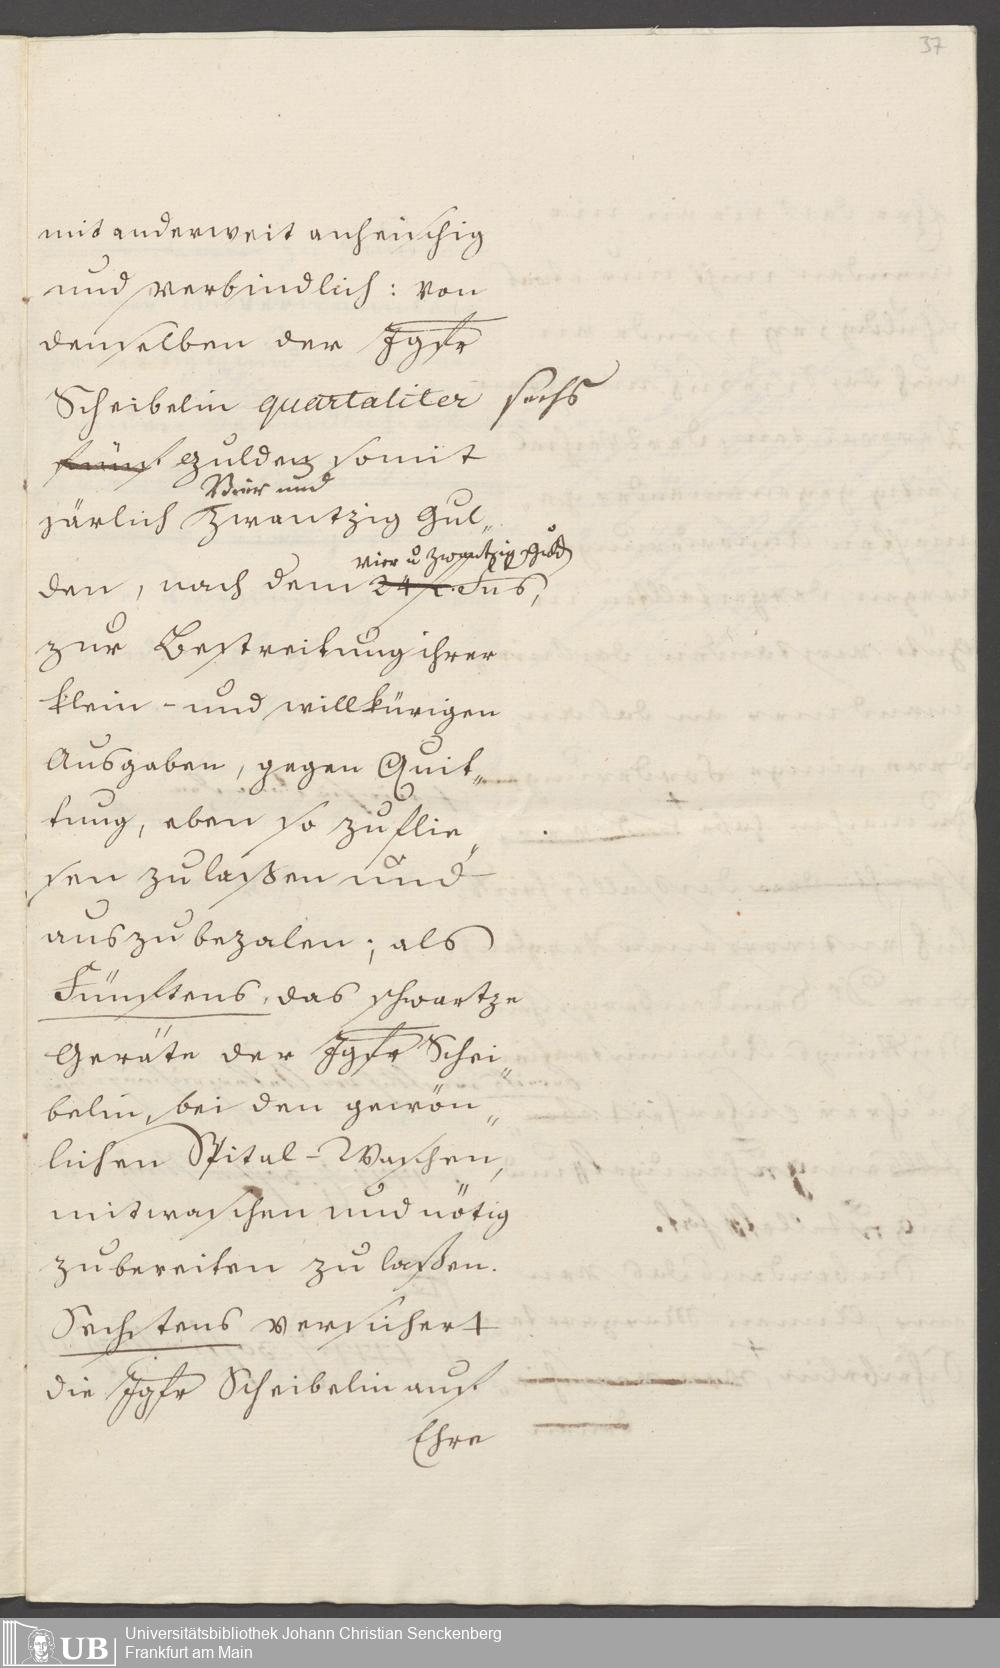 37
mit anderweit anheischig
und verbindlich: von
denselben der Jgfr
Scheibelin quartaliter sechs
fünf Gulden somit
Vier und
järlich Zwantzig Gul„
vier u Zwantzig Guld
den, nach dem 24 f. Fus,
zur Bestreitung ihrer
klein- und willkürigen
Ausgaben, gegen Quit„
tung, eben so zuflie„
sen zulaßen und
auszubezalen; als
Fünftens, das schwartze
Geräte der Jgfr Schei„
belin, bei den gewön„
lichen Spital-Waschen,
mitwaschen und nötig
zubereiten zu laßen.
Sechstens versichert
die Jgfr Scheibelin auf
Ehre
UB
Universitätsbibliothek Johann Christian Senckenberg
Frankfurt am Main